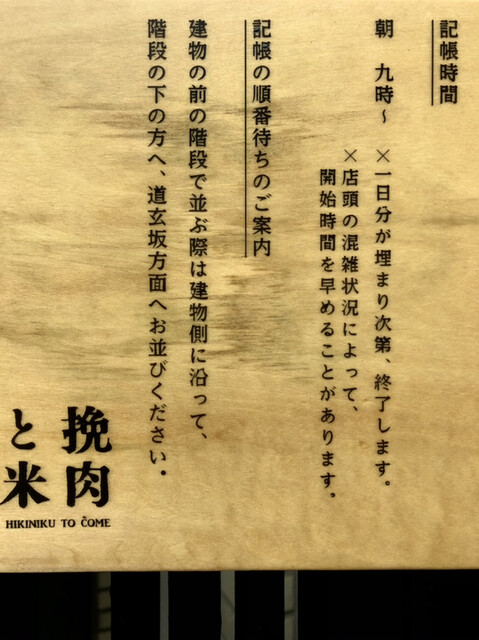 記帳時間
朝　九時～
×一日分が埋まり次第、終了します。
×店頭の混雑状況によって、
開始時間を早めることがあります。
記帳の順番待ちのご案内
建物の前の階段で並ぶ際は建物側に沿って、
階段の下の方へ、道玄坂方面へお並びください。
挽肉
と米
HIKINIKU TO CŌME